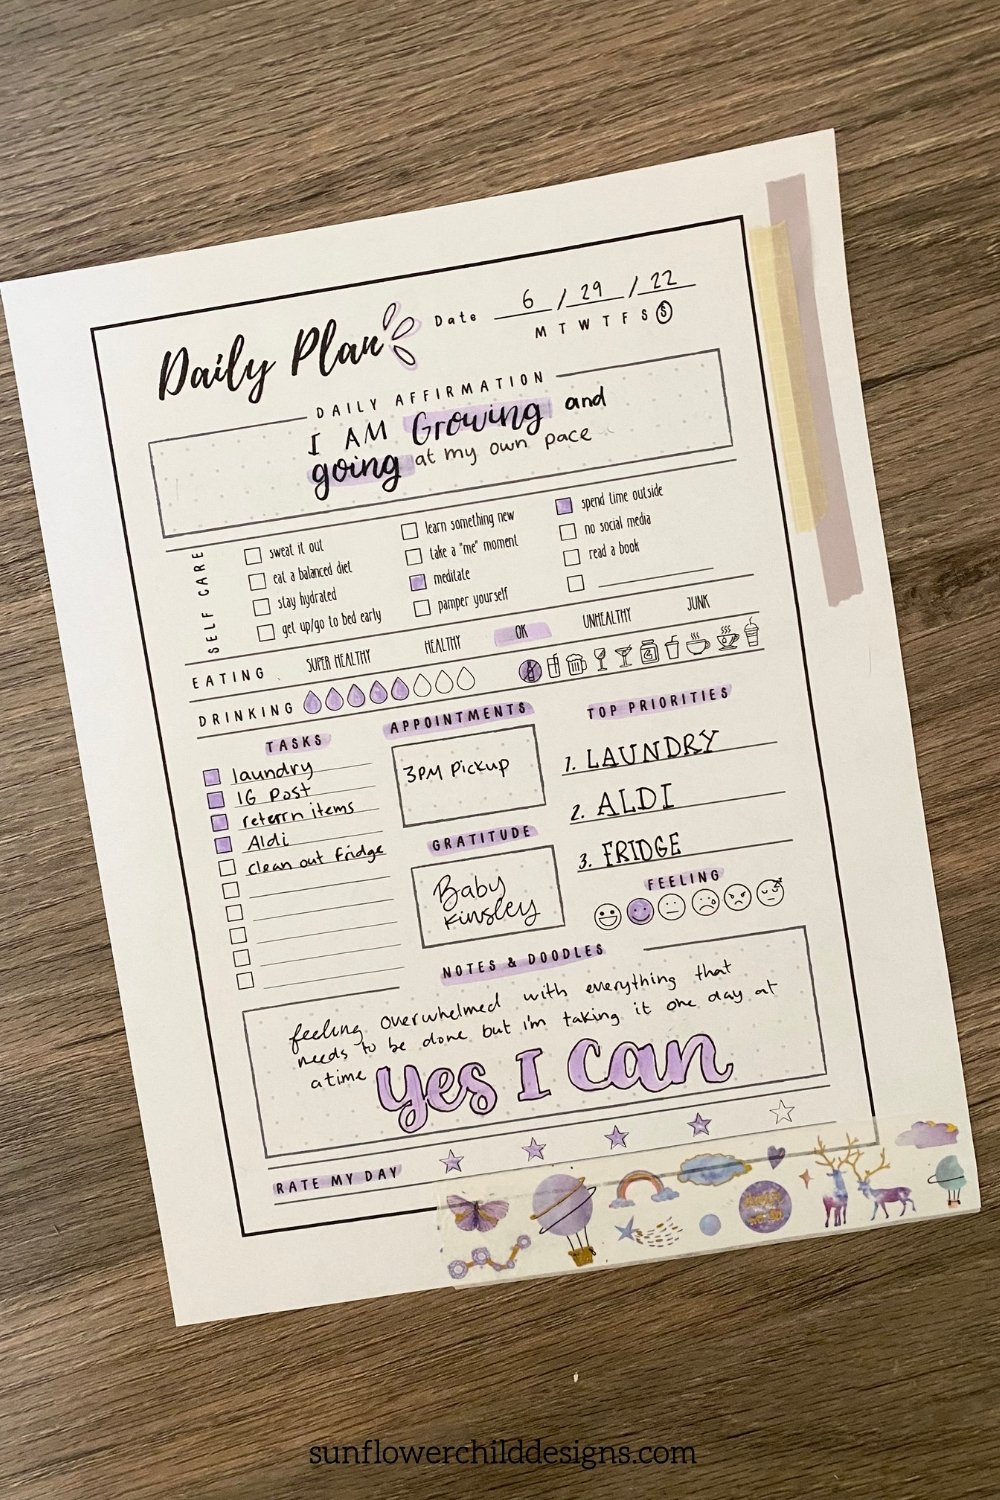 Daily Plan
Date 6 / 29 / 22
M T W T F S S
DAILY AFFIRMATION
I AM Growing and
going at my own pace
SELF CARE
sweat it out
eat a balanced diet
stay hydrated
get up/go to bed early
learn something new
take a "me" moment
meditate
pamper yourself
spend time outside
no social media
read a book
EATING SUPER HEALTHY HEALTHY OK UNHEALTHY JUNK
DRINKING
TASKS
laundry
IG Post
reterrn items
Aldi
clean out fridge
APPOINTMENTS
3PM Pickup
GRATITUDE
Baby
Kinsley
TOP PRIORITIES
1. LAUNDRY
2. ALDI
3. FRIDGE
FEELING
NOTES & DOODLES
feeling overwhelmed with everything that
needs to be done but i'm taking it one day at
a time
Yes I Can
RATE MY DAY
sunflowerchilddesigns.com